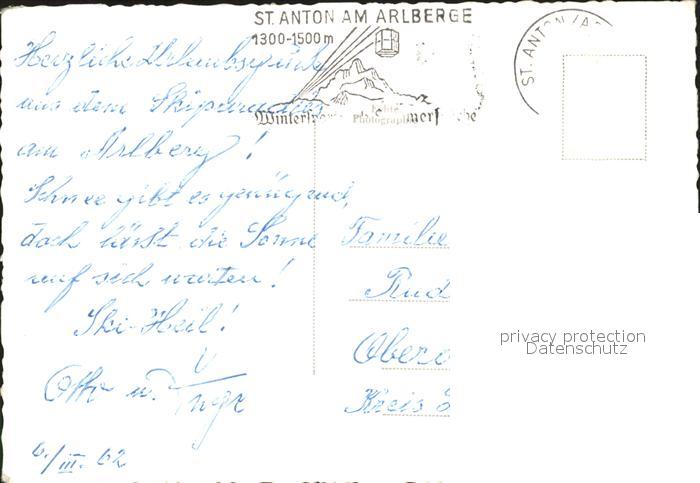 ST. ANTON AM ARLBERGE
1300-1500 m
ST. ANTON
Herzliche Urlaubsgrüße
aus dem Skiparadies
am Arlberg!
Schnee gibt es genügend,
doch lässt die Sonne
auf sich warten!
Ski-Heil!
Otto u. Inge
6./III. 62
Familie
Rud
Obero
Kreis
privacy protection
Datenschutz